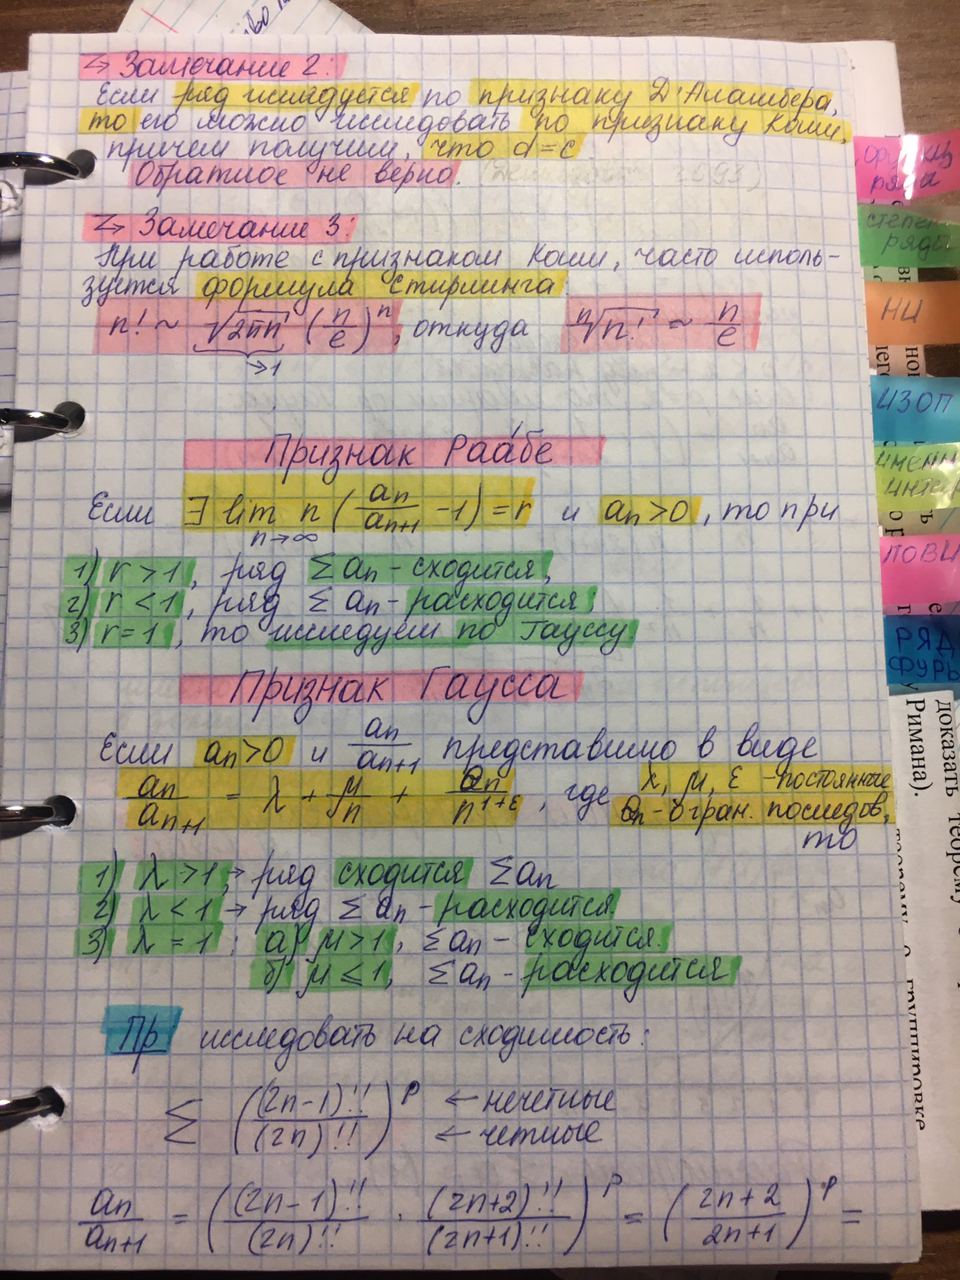 Замечание 2:
Если ряд исследуется по признаку Д'Аламбера,
то его можно исследовать по признаку Коши,
причем получим, что d=c
Обратное не верно.
Замечание 3:
При работе с признаком Коши, часто исполь-
зуется формула Стирлинга
n! ~ √2πn (n/e)^n, откуда ⁿ√n! ~ n/e
→1
Признак Раáбе
Если ∃ lim n→∞ n (an/an+1 - 1) = r и an>0, то при
1) r>1, ряд Σan - сходится,
2) r<1, ряд Σan - расходится;
3) r=1, то исследуем по Гауссу
Признак Гаусса
Если an>0 и an/an+1 представимо в виде
an/an+1 = λ + μ/n + Θn/n^1+ε, где λ, μ, ε - постоянные
Θn - огран. последов,
то
1) λ>1 → ряд сходится Σan
2) λ<1 → ряд Σan - расходится
3) λ=1: а) μ>1, Σan - сходится.
б) μ≤1, Σan - расходится
Пр исследовать на сходимость:
Σ ((2n-1)!!/(2n)!!)^p ← нечетные
← четные
an/an+1 = ((2n-1)!!/(2n)!! · (2n+2)!!/(2n+1)!!)^p = (2n+2/2n+1)^p =
ряды
степен
ряды
НИ
ИЗОП
ПОВИ
РЯД
ФУРЬ
доказать теорему
Римана).
группировке